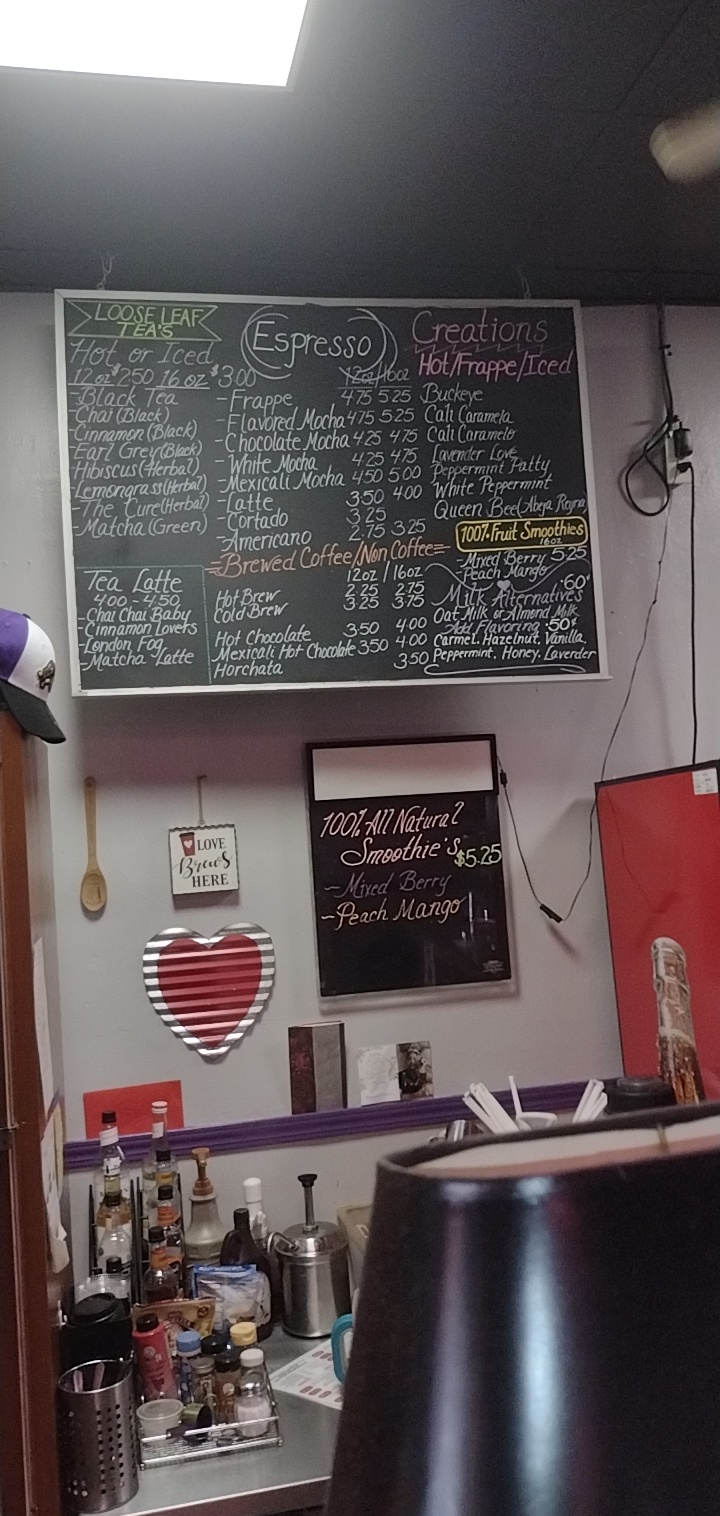 LOOSE LEAF
TEA'S
Hot or Iced
12 oz $2.50 16 oz $3.00
-Black Tea
-Chai (Black)
-Cinnamon (Black)
-Earl Grey (Black)
-Hibiscus (Herbal)
-Lemongrass (Herbal)
-The Cure (Herbal)
-Matcha (Green)
Tea Latte
4.00 - 4.50
-Chai Chai Baby
-Cinnamon Lovers
-London Fog
-Matcha Latte
Espresso
12oz/16oz
-Frappe 4.75 5.25
-Flavored Mocha 4.75 5.25
-Chocolate Mocha 4.25 4.75
-White Mocha 4.25 4.75
-Mexicali Mocha 4.50 5.00
-Latte 3.50 4.00
-Cortado 3.25
-Americano 2.75 3.25
Brewed Coffee/Non Coffee
12oz / 16oz
Hot Brew 2.25 2.75
Cold Brew 3.25 3.75
Hot Chocolate 3.50 4.00
Mexicali Hot Chocolate 3.50 4.00
Horchata 3.50
Creations
Hot/Frappe/Iced
Buckeye
Cali Caramela
Cali Caramelo
Lavender Love
Peppermint Patty
White Peppermint
Queen Bee (Abeja Reyna
100% Fruit Smoothies
16oz
-Mixed Berry 5.25
-Peach Mango
Milk Alternatives .60¢
Oat Milk or Almond Milk
Add Flavoring .50¢
Carmel, Hazelnut, Vanilla,
Peppermint, Honey, Laverder
LOVE
Brews
HERE
100% All Natural
Smoothie's $5.25
-Mixed Berry
-Peach Mango